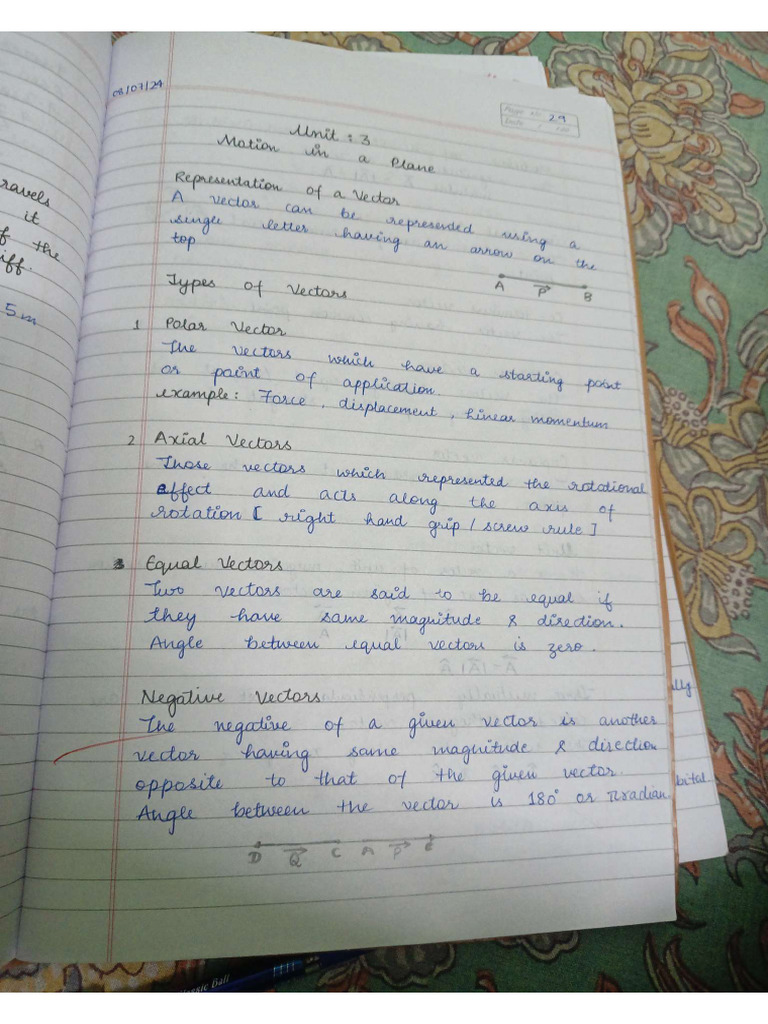 ravels
it
f the
iff.
5m
08/07/24
Page No. 29
Date
Unit : 3
Motion in a Plane
Representation of a Vector
A vector can be represented using a
single letter having an arrow on the
top
A P B
Types of Vectors
1 Polar Vector
The vectors which have a starting point
or point of application.
example: Force, displacement, linear momentum
2 Axial Vectors
Those vectors which represented the rotational
effect and acts along the axis of
rotation [ right hand grip / screw rule ]
3 Equal Vectors
Two vectors are said to be equal if
they have same magnitude & direction.
Angle between equal vectors is zero.
Negative Vectors
The negative of a given vector is another
vector having same magnitude & direction
opposite to that of the given vector.
Angle between the vector is 180° or π radian
D Q C A P
ally
bital
Classic Ball